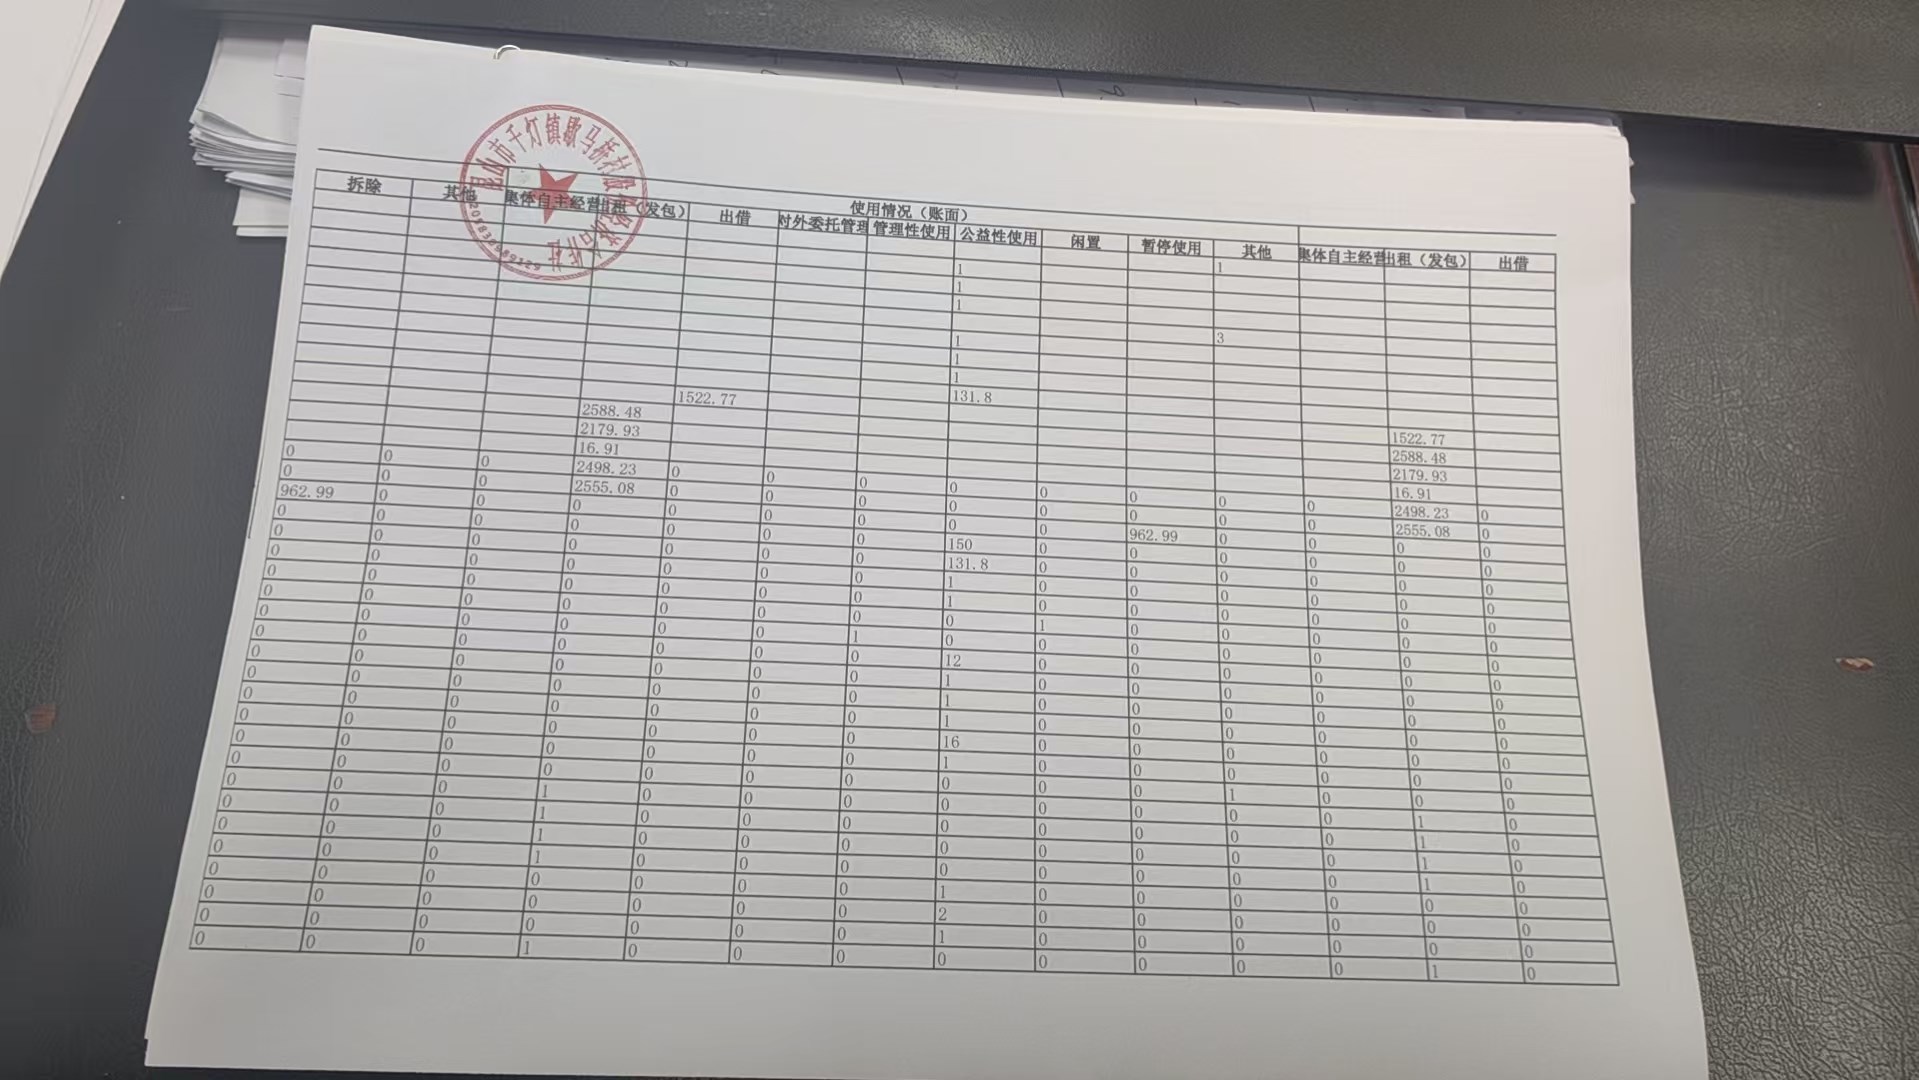 昆山市千灯镇歇马桥村股份经济合作社
使用情况（账面）
拆除 其他 集体自主经营 出租（发包） 出借 对外委托管理 管理性使用 公益性使用 闲置 暂停使用 其他 集体自主经营 出租（发包） 出借
1
1
1
1
3
1
1
1
131.8
1522.77 1522.77
2588.48 2588.48
2179.93 2179.93
16.91 16.91
0 0 0 2498.23 0 0 0 0 0 0 0 0 2498.23 0
0 0 0 2555.08 0 0 0 0 0 0 0 0 2555.08 0
962.99 0 0 0 0 0 0 0 0 962.99 0 0 0 0
0 0 0 0 0 0 0 150 0 0 0 0 0 0
0 0 0 0 0 0 0 131.8 0 0 0 0 0 0
0 0 0 0 0 0 0 1 0 0 0 0 0 0
0 0 0 0 0 0 0 1 0 0 0 0 0 0
0 0 0 0 0 0 0 0 1 0 0 0 0 0
0 0 0 0 0 0 1 0 0 0 0 0 0 0
0 0 0 0 0 0 0 12 0 0 0 0 0 0
0 0 0 0 0 0 0 1 0 0 0 0 0 0
0 0 0 0 0 0 0 1 0 0 0 0 0 0
0 0 0 0 0 0 0 1 0 0 0 0 0 0
0 0 0 0 0 0 0 16 0 0 0 0 0 0
0 0 0 0 0 0 0 1 0 0 0 0 0 0
0 0 0 0 0 0 0 0 0 0 1 0 0 0
0 0 0 1 0 0 0 0 0 0 0 0 1 0
0 0 0 1 0 0 0 0 0 0 0 0 1 0
0 0 0 1 0 0 0 0 0 0 0 0 1 0
0 0 0 1 0 0 0 0 0 0 0 0 1 0
0 0 0 0 0 0 0 1 0 0 0 0 0 0
0 0 0 0 0 0 0 2 0 0 0 0 0 0
0 0 0 0 0 0 0 1 0 0 0 0 0 0
0 0 0 1 0 0 0 0 0 0 0 0 1 0